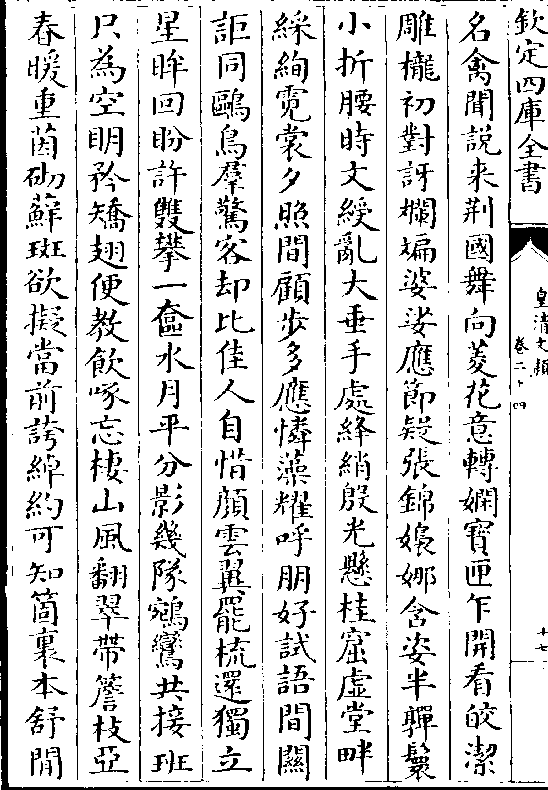 欽定四庫全書
皇清文穎
卷二十四
十七
名禽聞説来荆國舞向菱花意轉嫻寶匣乍開看皎潔
雕櫳初對訝斕斒婆娑應節疑張錦娘娜含姿半嚲鬟
小折腰時文綬亂大垂手處絳綃殷光懸桂窟虚堂畔
綵絢霓裳夕照間顧步多應憐藻耀呼朋好試語間關
詎同鷗鳥羣驚客却比佳人自惜顔雲翼罷梳還獨立
星眸回盼許雙攀一奩水月平分影幾隊鵷鸞共接班
只為空明矜矯翅便教飲啄忘棲山風翻翠帶簷枝亞
春暖重茵砌蘚斑欲擬當前誇綽約可知箇裏本舒閒